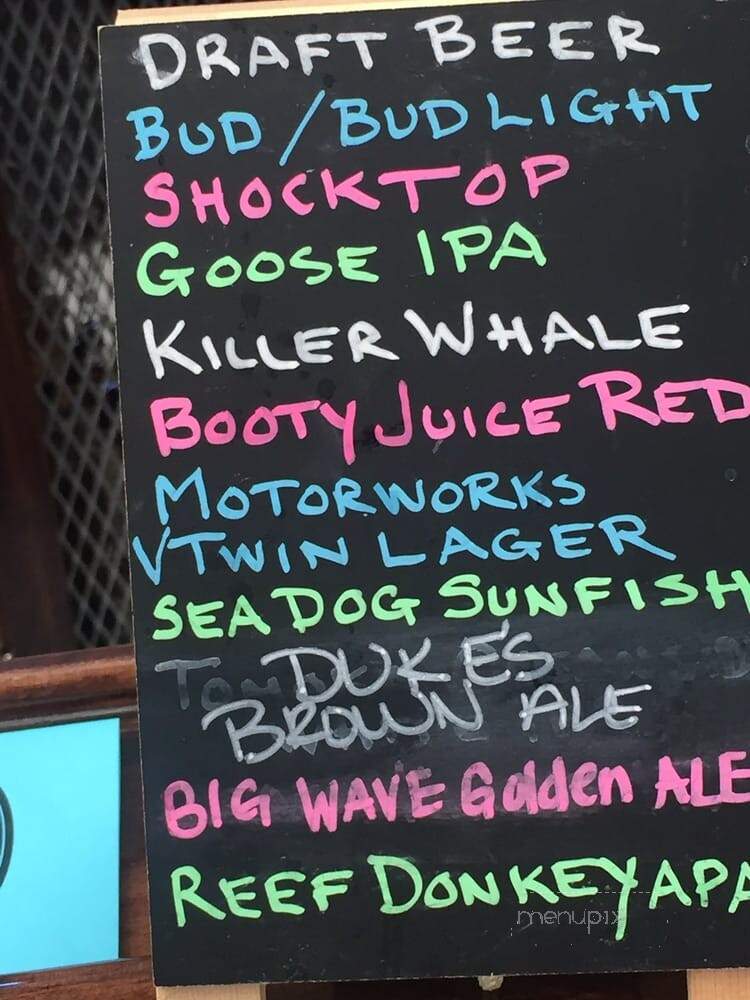 DRAFT BEER
BUD / BUD LIGHT
SHOCKTOP
GOOSE IPA
KILLER WHALE
BOOTY JUICE RED
MOTORWORKS
VTWIN LAGER
SEA DOG SUNFISH
DUKE'S
BROWN ALE
BIG WAVE Golden ALE
REEF DONKEY APA
menupix